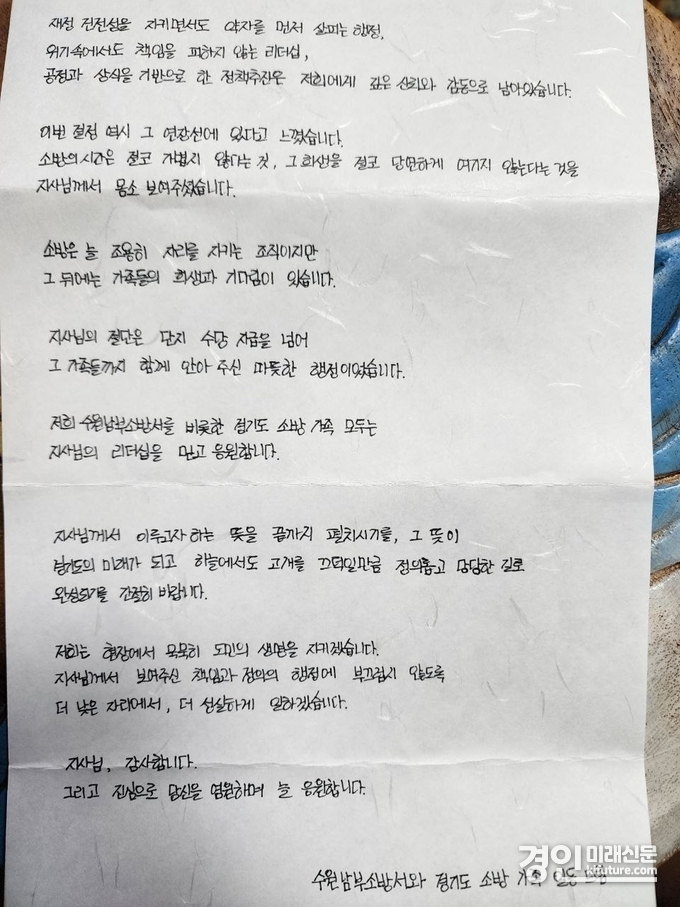 재정 건전성을 지키면서도 약자를 먼저 살피는 행정,
위기속에서도 책임을 피하지 않는 리더십,
공정과 상식을 기반으로 한 정책추진은 저희에게 깊은 신뢰와 감동으로 남아있습니다.
이번 결정 역시 그 연장선에 있다고 느꼈습니다.
소방의 시간은 결코 가볍지 않다는 것, 그 희생을 결코 당연하게 여기지 않는다는 것을
지사님께서 몸소 보여주셨습니다.
소방은 늘 조용히 자리를 지키는 조직이지만
그 뒤에는 가족들의 희생과 기다림이 있습니다.
지사님의 결단은 단지 수당 지급을 넘어
그 가족들까지 함께 안아 주신 따뜻한 행정이었습니다.
저희 수원남부소방서를 비롯한 경기도 소방 가족 모두는
지사님의 리더십을 믿고 응원합니다.
지사님께서 이루고자 하는 뜻을 끝까지 펼치시기를, 그 뜻이
경기도의 미래가 되고 하늘에서도 고개를 끄덕일만큼 정의롭고 당당한 길로
완성되기를 간절히 바랍니다.
저희는 현장에서 묵묵히 도민의 생명을 지키겠습니다.
지사님께서 보여주신 책임과 정의의 행정에 부끄럽지 않도록
더 낮은 자리에서, 더 성실하게 일하겠습니다.
지사님, 감사합니다.
그리고 진심으로 당신을 염원하며 늘 응원합니다.
수원남부소방서와 경기도 소방 가족 일동 드림
경인미래신문
kifuture.com